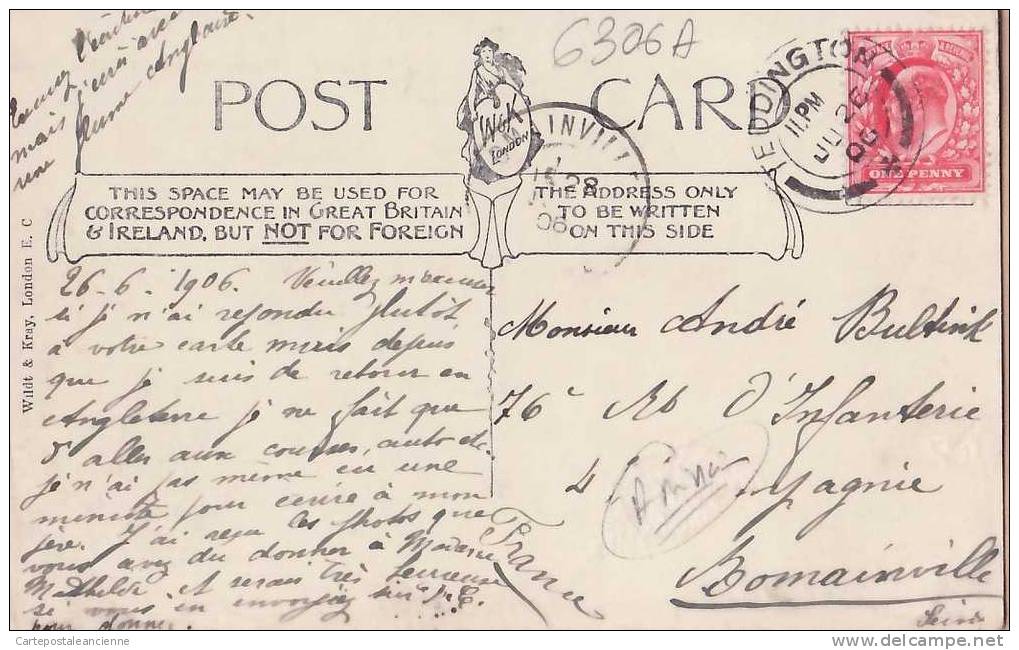 6306A
POST CARD
W&K
LONDON
TEDDINGTON
11. PM
JU 26
06
ONE PENNY
INVILLE
28
06
THIS SPACE MAY BE USED FOR
CORRESPONDENCE IN GREAT BRITAIN
& IRELAND, BUT NOT FOR FOREIGN
THE ADDRESS ONLY
TO BE WRITTEN
ON THIS SIDE
Wildt & Kray, London E. C
26-6-1906. Veuillez m'excuser
si je n'ai répondu plutôt
à votre carte mais depuis
que je suis de retour en
Angleterre je ne fait que
d'aller aux courses, auto etc.
je n'ai pas même eu une
minute pour écrire à mon
père. J'ai reçu les photos que
vous avez du donner à Madame
Mathilde et serais très heureuse
si vous en envoyiez
pour donner.
mais j'aurai
une plume anglaise.
Monsieur André Bultink
76e d'Infanterie
4 pagnie
Romainville
Seine
France
Cartepostaleancienne
www.delcampe.net